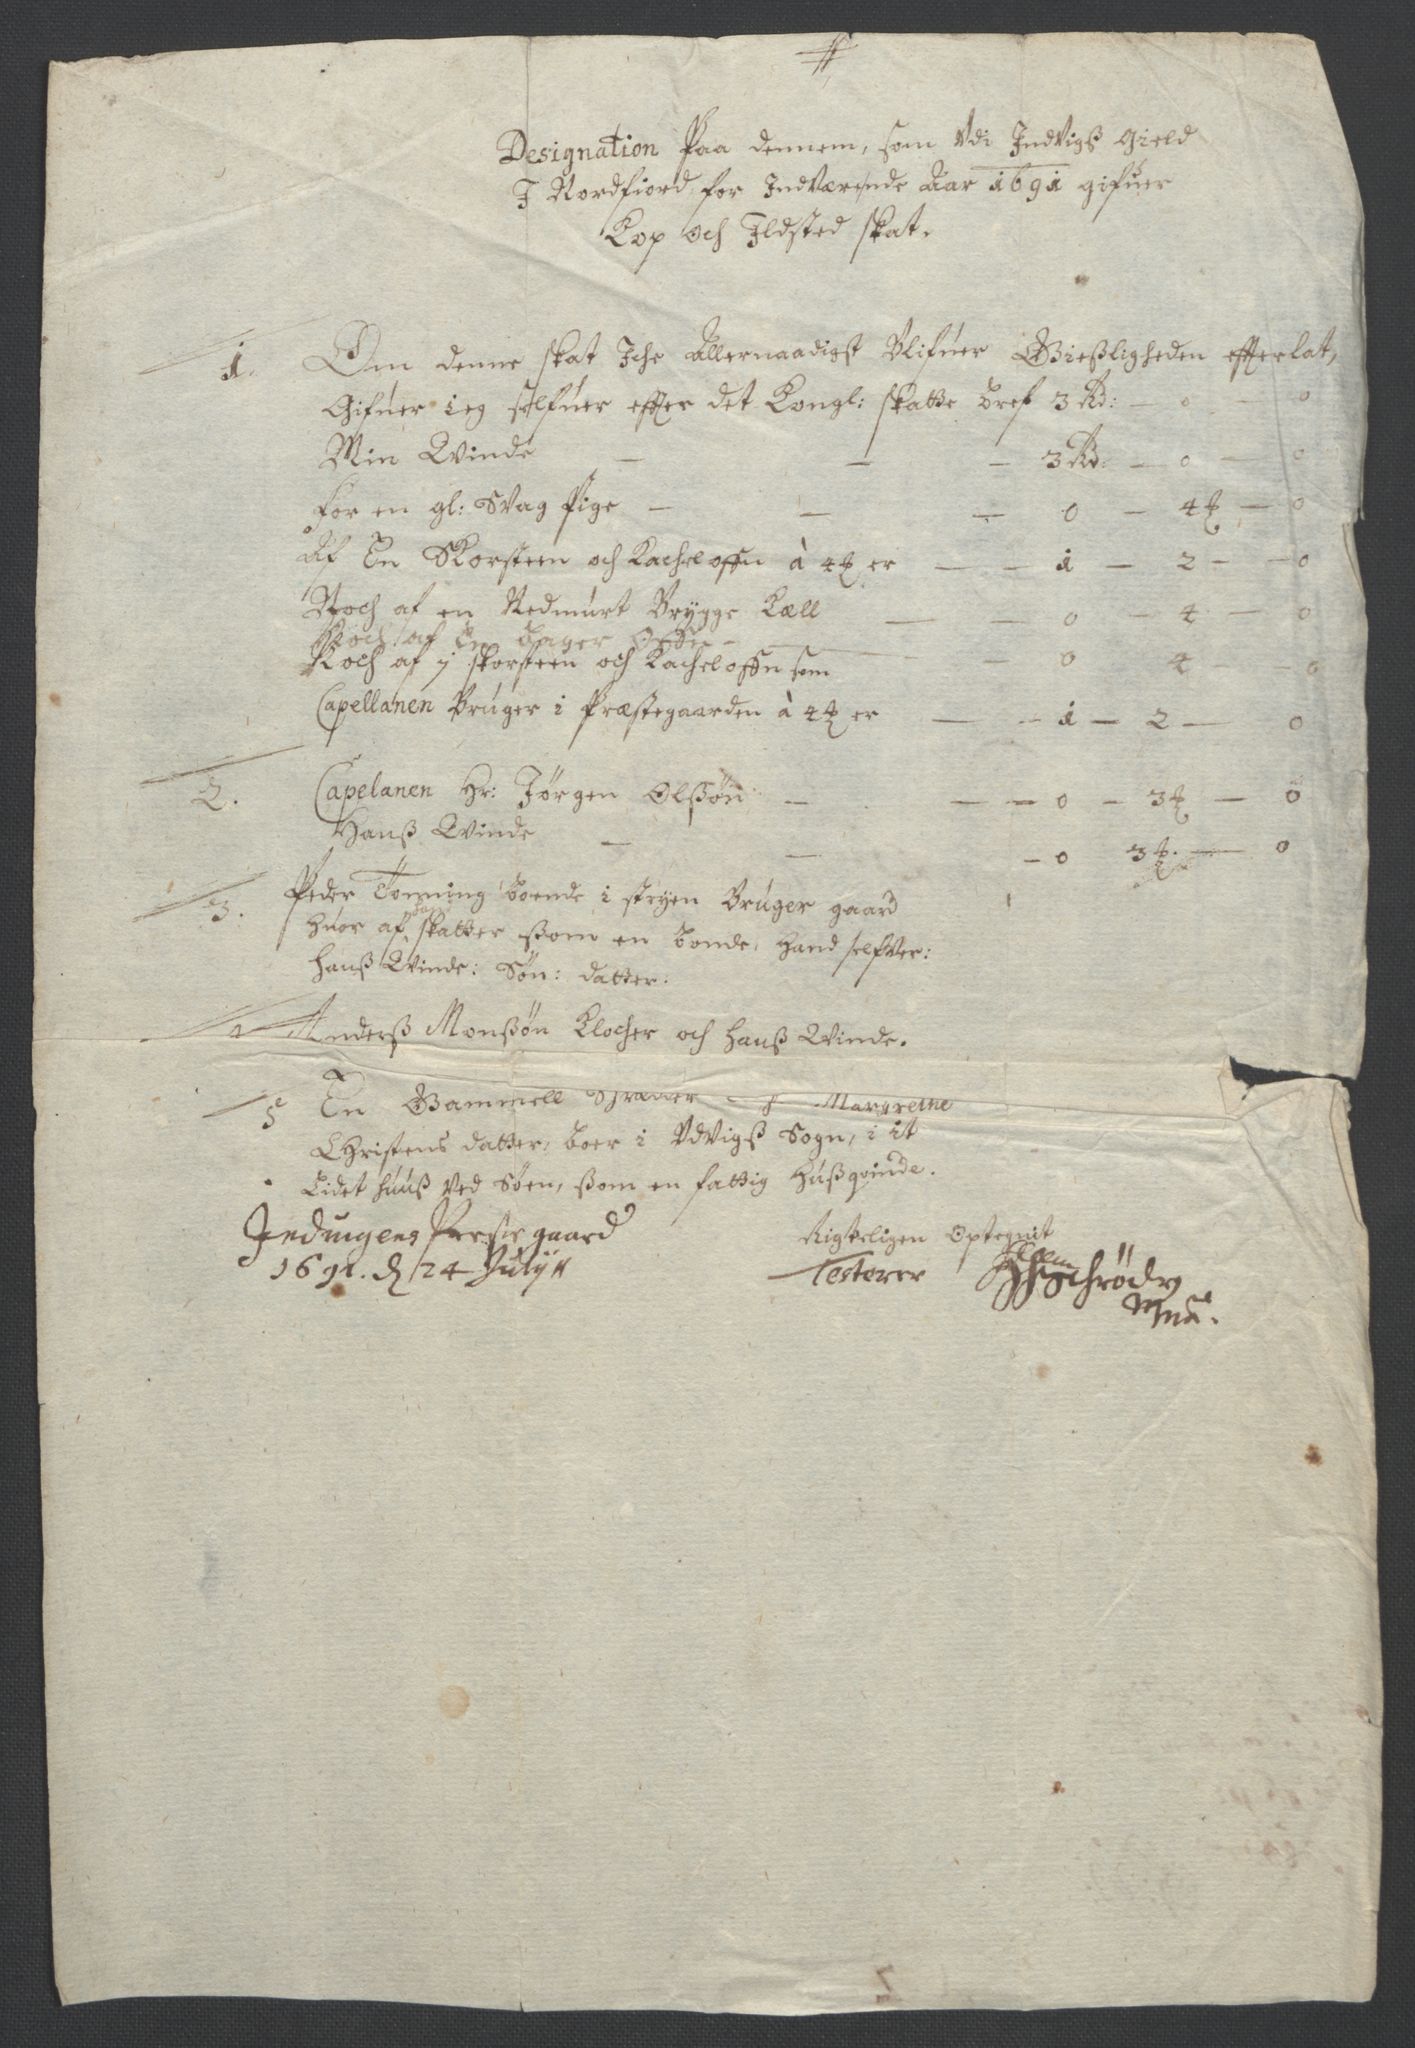 Designation Paa dennem, som Vdi IndVigß Gield
I Nordfiord for IndVærende Aar 1691 gifuer
Kop och Ildsted skat.
1. Om denne skat Iche Allernaadigst Blifuer Gießligheden efferlat,
Gifuer ieg selfuer effter det Kongl: skatte bref 3 Rd: — 0 — 0
Min Qvinde — — — 3 Rd: — 0 — 0
for en gl: Svag Pige — — — 0 — 4 ꝷ — 0
Af En Skorsteen och Kachelofn à 4 ꝷ er — — 1 — 2 — 0
Noch af en Nedmurt Brygge Kæll — — 0 — 4 — 0
Noch af En bager Ofn —
Noch af 1 skorsteen och Kachelofn som — 0 4 — 0
Capellanen Bruger i Præstegaarden à 4 ꝷ er — — 1 — 2 — 0
2. Capelanen Hr: Jørgen Olßøn — — — 0 — 3 ꝷ — 0
Hanß Qvinde — — — 0 3 ꝷ. — 0
3. Peder Tønning boende i stryen Bruger gaard
huor af skatter ßom en bonde, hand selfver:
hanß Qvinde: Søn: datter.
Anderß Monßøn Klocher och hanß Qvinde.
5 En Gammell Margrethe
Christens datter, boer i VdVigß Sogn, i it
Lidet huuß Ved Søen, ßom en fattig Hußqvinde.
Induigens Preste gaard Rigteligen Optegnit
1691. d 24 Julij Testerer Schrøder
Mma.